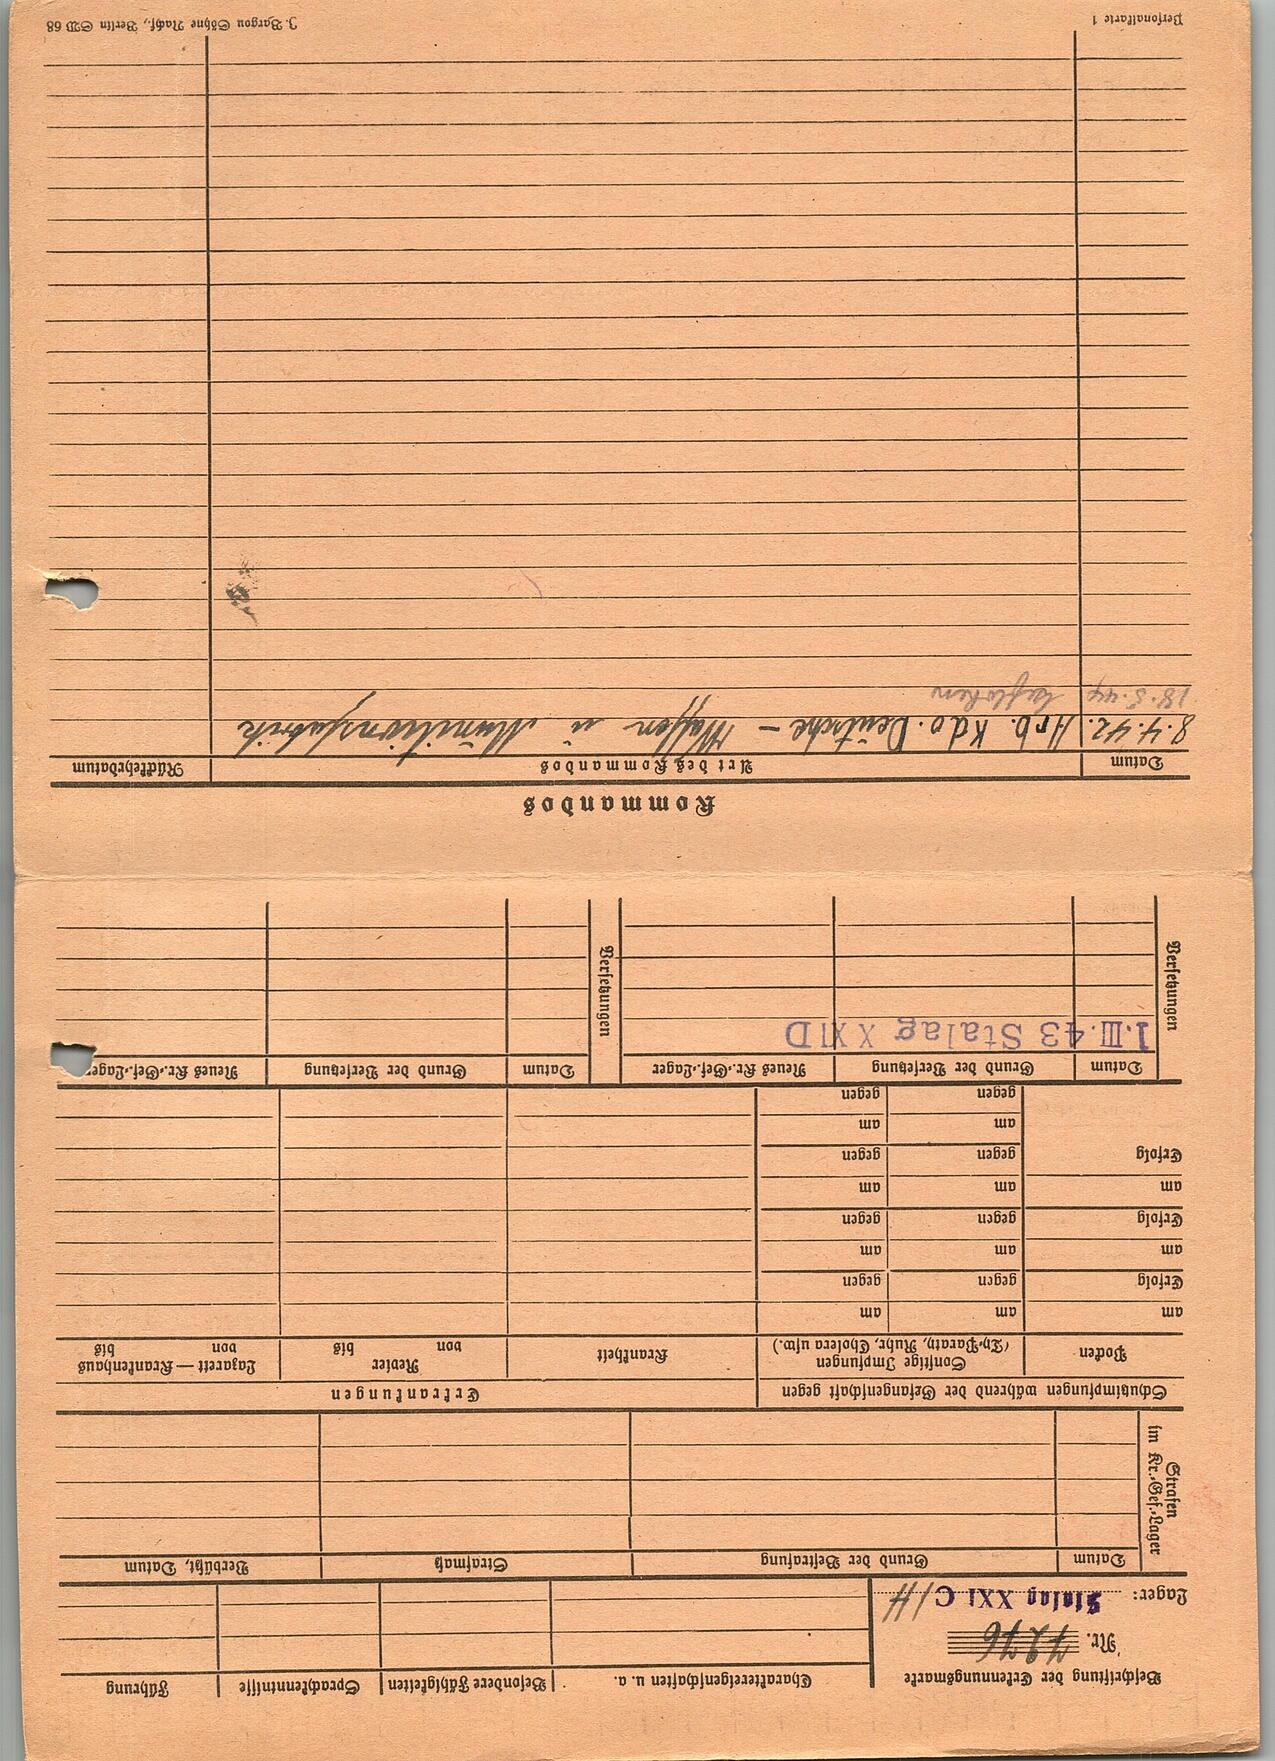 Beschriftung der Erkennungsmarke
Nr. 7276
Lager: Stalag XXI C/H
Charaktereigenschaften u. a.
Besondere Fähigkeiten
Sprachkenntnisse
Führung
Strafen im Kr.-Gef.-Lager
Datum
Grund der Bestrafung
Strafmaß
Verbüßt, Datum
Schutzimpfungen während der Gefangenschaft gegen
Erkrankungen
Pocken
Sonstige Impfungen
(Ty.-Paraty., Ruhr, Cholera usw.)
Krankheit
Revier
von bis
Lazarett — Krankenhaus
von bis
am am am
Erfolg gegen gegen
am am am
Erfolg gegen gegen
am am am
Erfolg gegen gegen
am am
gegen gegen
Versetzungen
Datum
Grund der Versetzung
Neues Kr.-Gef.-Lager
1.III.43 Stalag XXI D
Versetzungen
Datum
Grund der Versetzung
Neues Kr.-Gef.-Lager
Kommandos
Datum
Art des Kommandos
Rückkehrdatum
8.4.42. Arb. Kdo. Deutsche – Waffen u Munitionsfabrik
18.5.44
Personalkarte 1
J. Bargou Söhne Nachf., Berlin SW 68